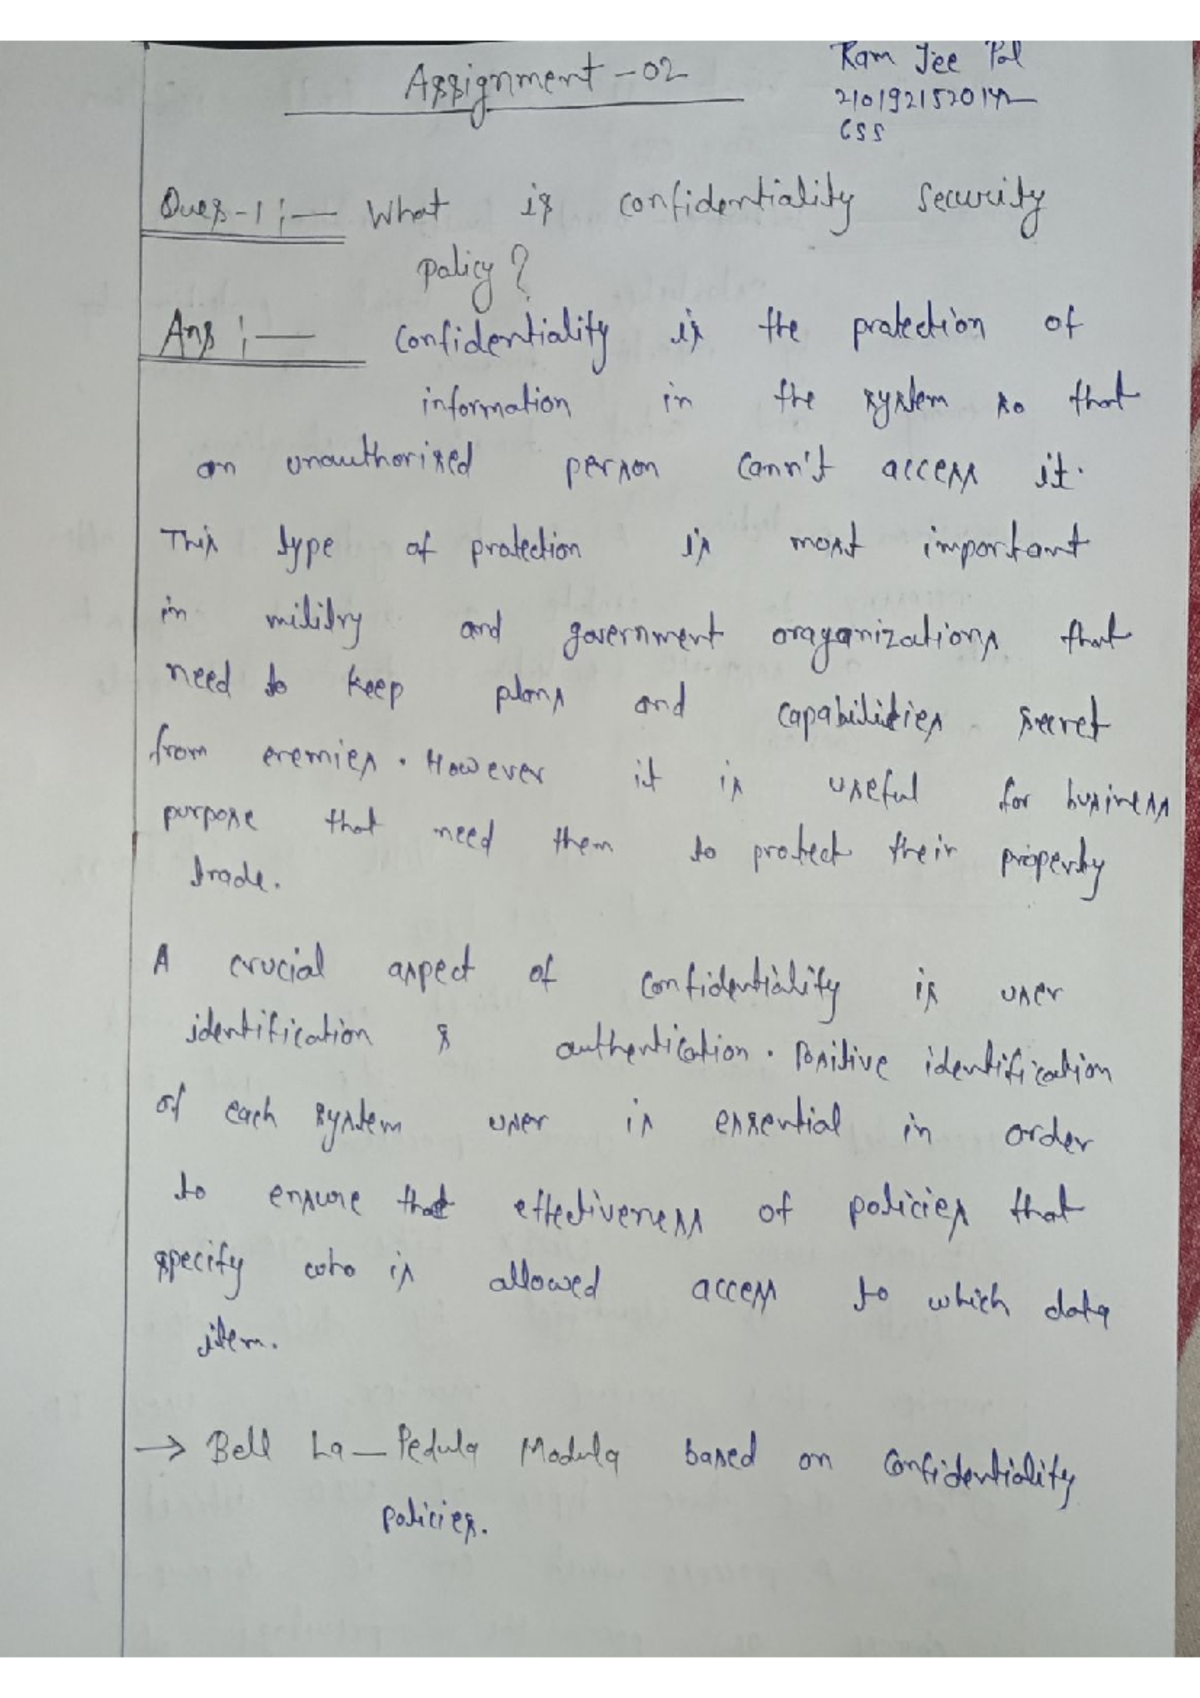 Assignment - 02
Ram Jee Pal
CSS
Ques-1 :— What is confidentiality security
policy?
Ans :— Confidentiality is the protection of
information in the system so that
an unauthorised person cann't access it.
This type of protection is most important
in militry and government oraganizations that
need to keep plans and capabilities secret
from enemies. However it is useful for business
purpose that need them to protect their property
trade.
A crucial aspect of confidentiality is user
identification & authentication. Positive identification
of each system user is essential in order
to ensure that effectiveness of policies that
specify who is allowed access to which data
item.
→ Bell La—Pedula Modula based on Confidentiality
policies.